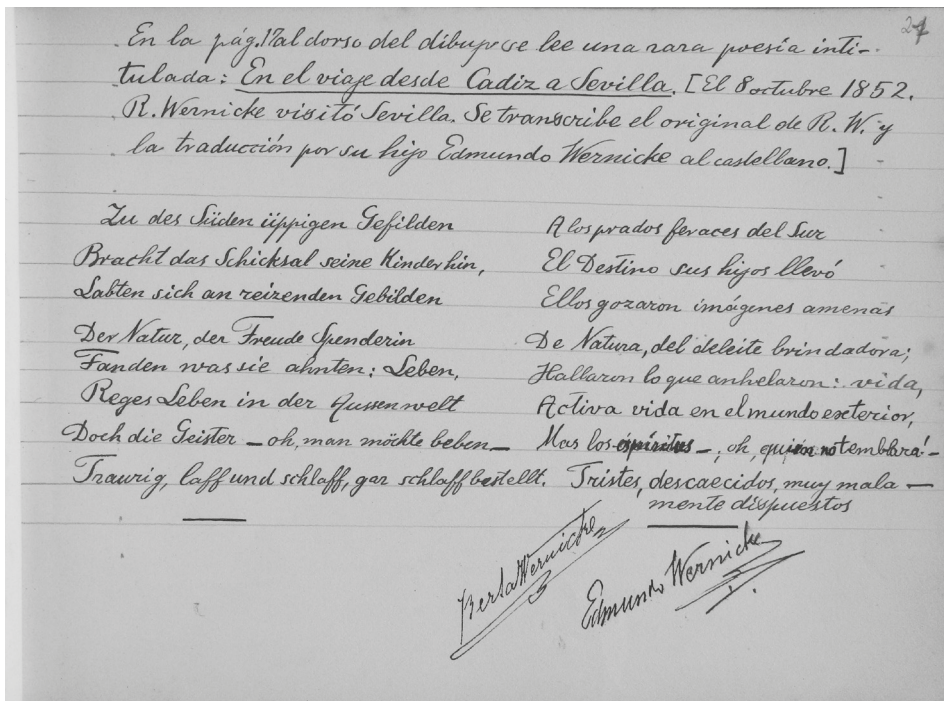 27
En la pág. 17 al dorso del dibujo se lee una rara poesía inti-
tulada: En el viaje desde Cadiz a Sevilla. [El 8 octubre 1852.
R. Wernicke visitó Sevilla. Se transcribe el original de R. W. y
la traducción por su hijo Edmundo Wernicke al castellano.]
Zu des Süden üppigen Gefilden
Bracht das Schicksal seine Kinder hin,
Labten sich an reizenden Gebilden
Der Natur, der Freude Spenderin
Fanden was sie ahnten: Leben,
Reges Leben in der Aussenwelt
Doch die Geister – oh, man möchte beben –
Traurig, laff und schlaff, gar schlaff bestellt.
A los prados feraces del Sur
El Destino sus hijos llevó
Ellos gozaron imágenes amenas
De Natura, del deleite brindadora;
Hallaron lo que anhelaron: vida,
Activa vida en el mundo exterior,
Mas los espíritus –, oh, quien no temblará! –
Tristes, descaecidos, muy mala –
mente dispuestos
Berta Wernicke
Edmundo Wernicke